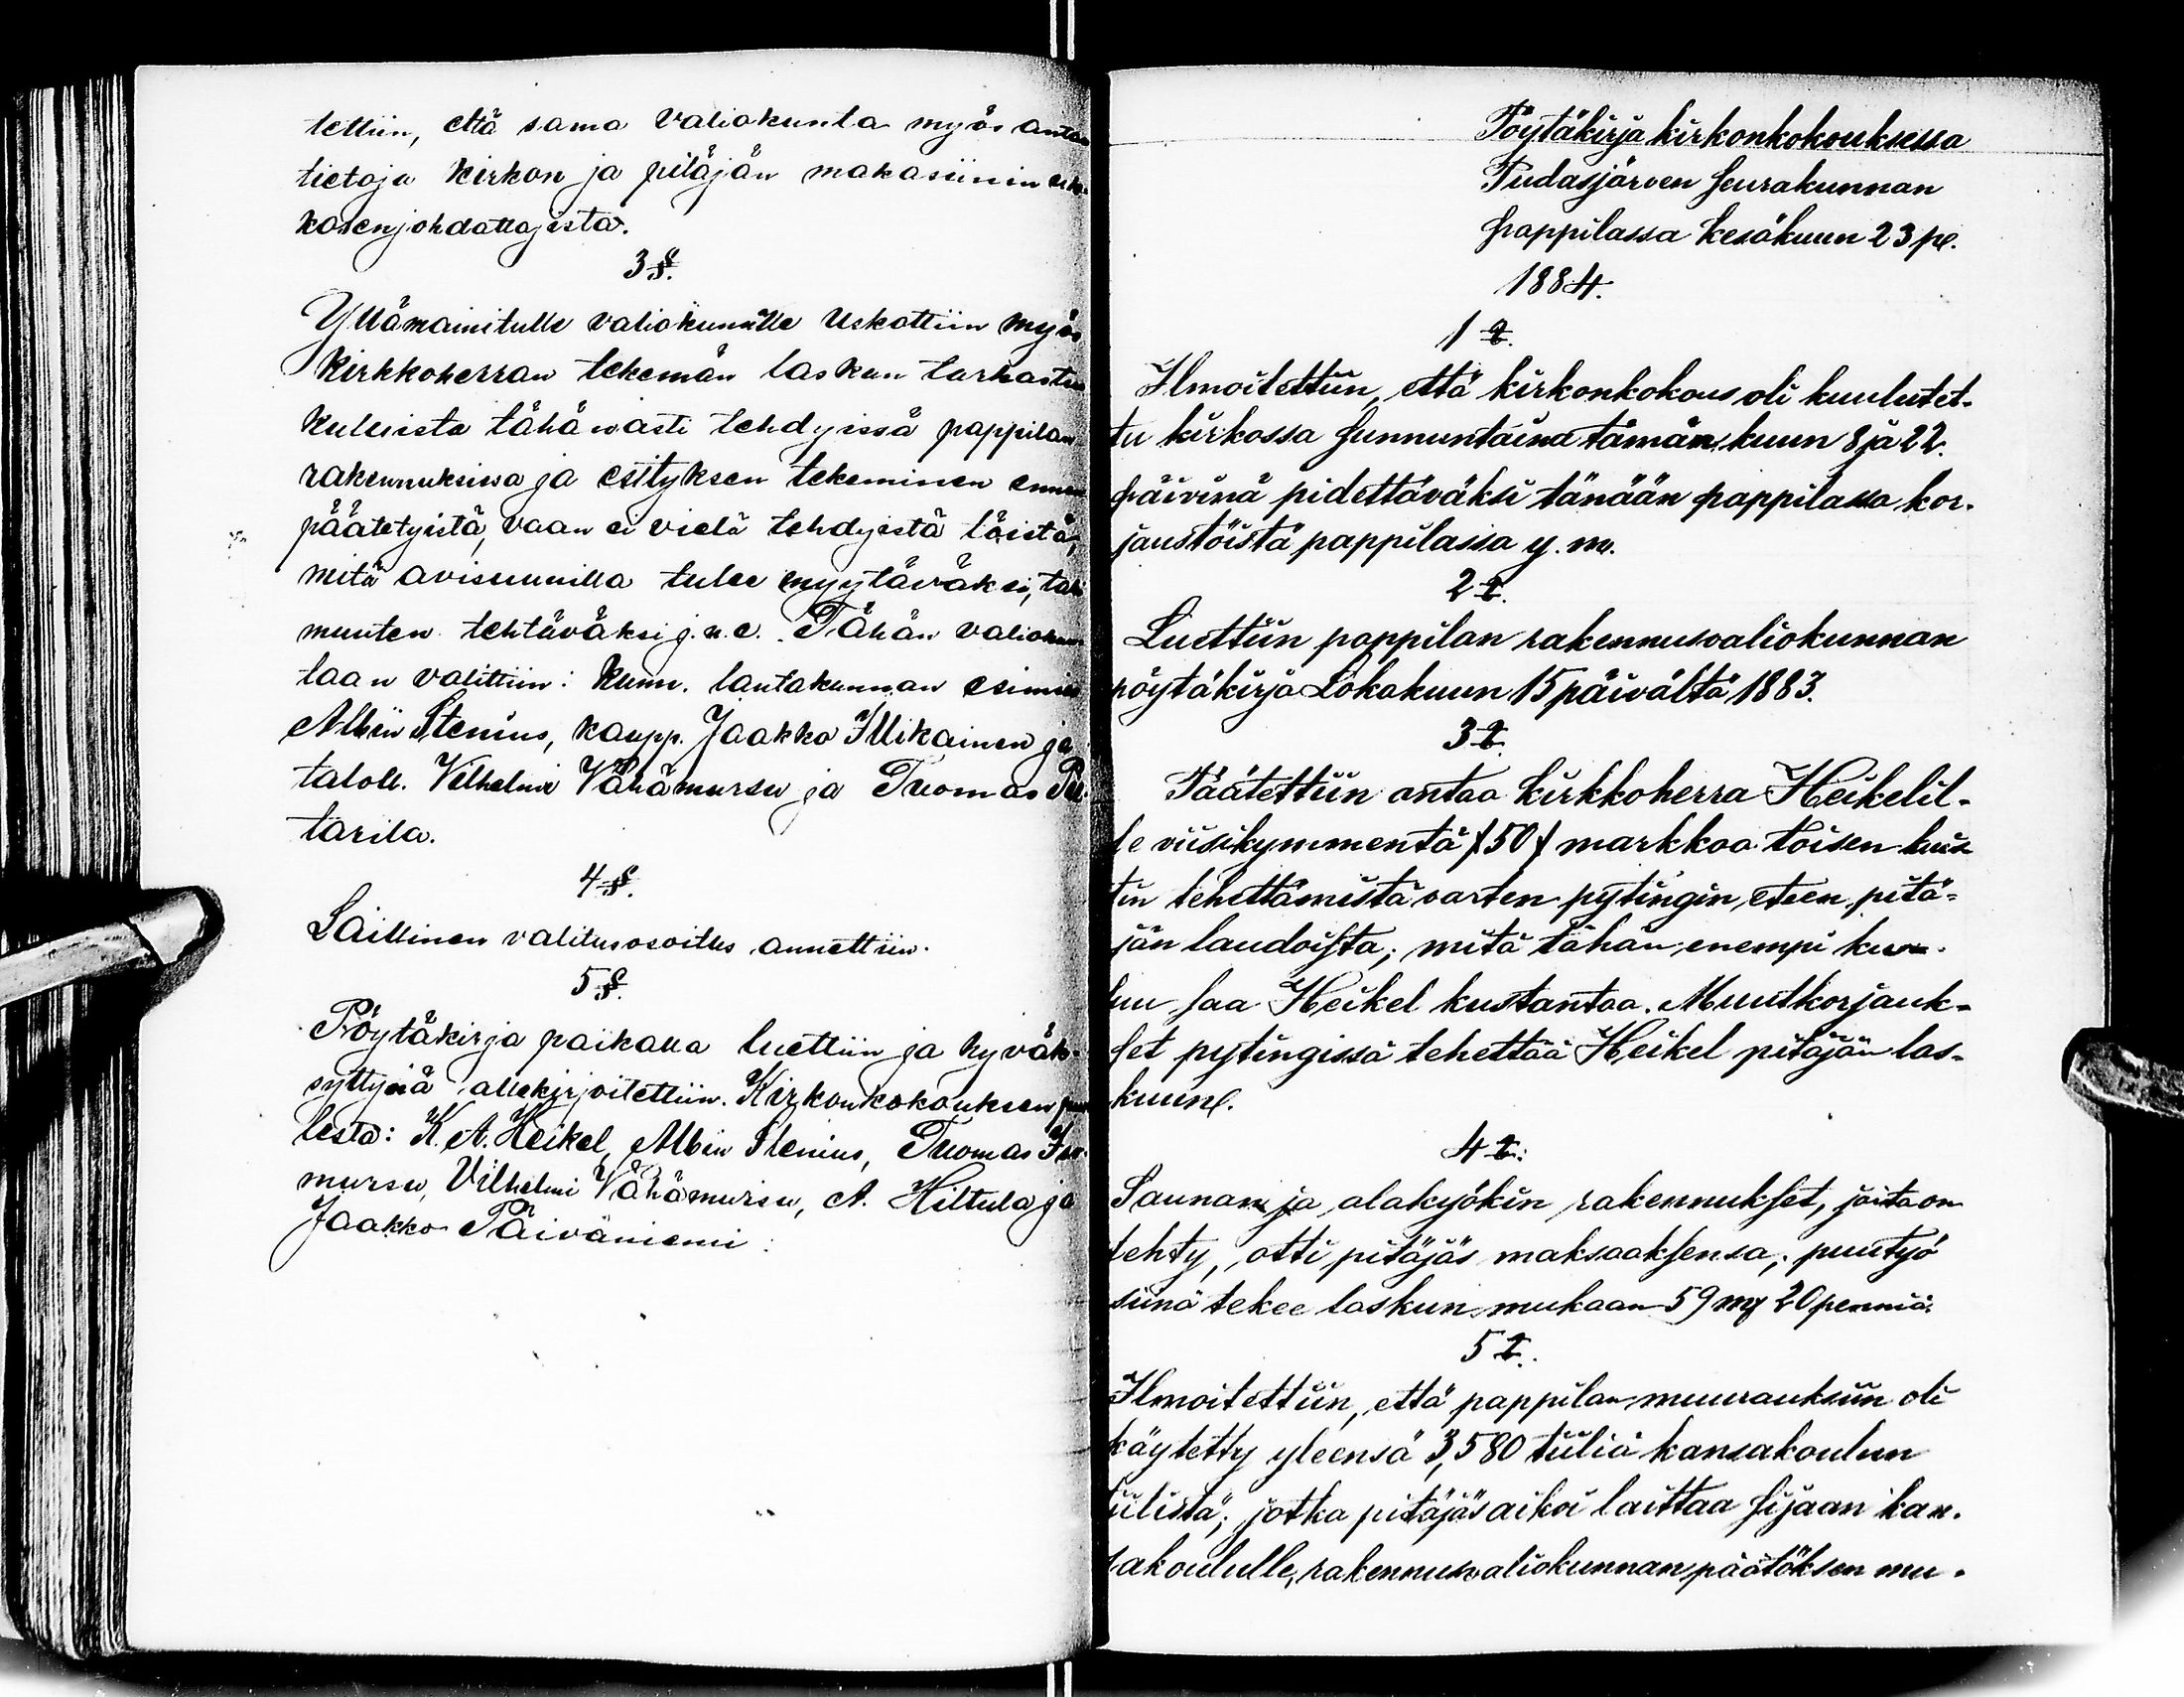 tettiin, että sama valiokunta myös antaa
tietoja kirkon ja pitäjän makasiinin
katenjohdattajista.
3 §.
Yllämainitulle valiokunnalle uskottiin myös
kirkkoherran tekemän laskun tarkastus
kuluista tähän asti tehdyissä pappilan
rakennuksissa ja esityksen tekeminen ennen
päätetyistä, vaan ei vielä tehdyistä töistä,
mitä avisuunilla tulee myytäväksi, tahi
muuten tehtäväksi j.n.e. Tähän valiokun
taan valittiin: kunn. lautakunnan esimies
Albin Stenius, kaupp. Jaakko Illikainen ja
taloll. Vilhelmi Vähämursu ja Tuomas Pu
tarila.
4 §.
Laillinen valitusosoitus annettiin.
5 §.
Pöytäkirja paikalla luettiin ja hyväk-
syttynä allekirjoitettiin. Kirkonkokouksen puo
lesta: K. A. Heikel, Albin Stenius, Tuomas
mursu, Vilhelmi Vähämursu, A. Hiltula ja
Jaakko Päiväniemi.
Pöytäkirja kirkonkokouksessa
Pudasjärven seurakunnan
pappilassa kesäkuun 23 p.
1884.
1 §.
Ilmoitettiin, että kirkonkokous oli kuulutet-
tu kirkossa sunnuntaina tämän kuun 8 ja 22.
päivinä pidettäväksi tänään pappilassa kor-
jaustöistä pappilassa y. m.
2 §.
Luettiin pappilan rakennusvaliokunnan
pöytäkirja Lokakuun 15 päivältä 1883.
3 §.
Päätettiin antaa kirkkoherra Heikelil-
le viisikymmentä /50/ markkaa toisen kuis
tin tehettämistä varten pytingin eteen pitä-
jän laudoista; mitä tähän enempi kuu-
luu saa Heikel kustantaa. Muut korjauk-
set pytingissä tehettää Heikel pitäjän las-
kuun.
4 §.
Saunan ja alakyökin rakennukset, joita on
tehty, otti pitäjäs maksaaksensa; puutyö
siinä tekee laskun mukaan 59 m 20 penniä.
5 §.
Ilmoitettiin, että pappilan muurauksiin oli
käytetty yleensä 3,580 tiiliä kansakoulun
tiilistä; jotka pitäjäs aikoi laittaa sijaan kan-
sakoululle, rakennusvaliokunnan päätöksen mu-